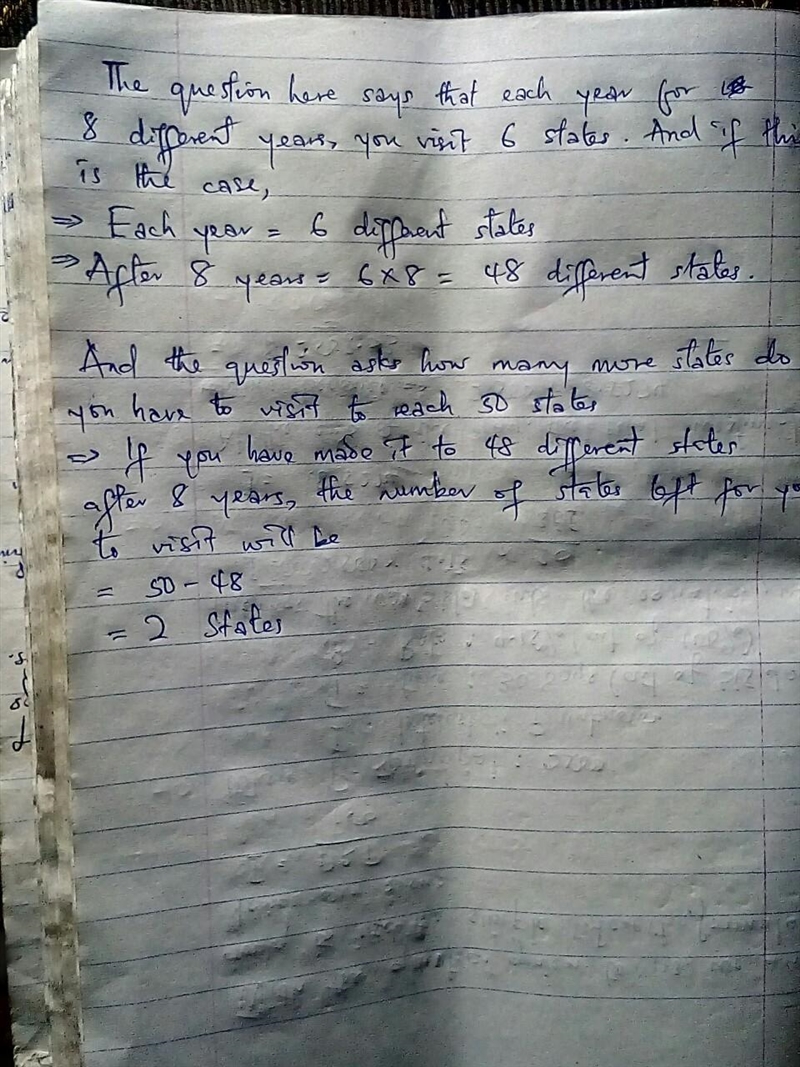 The question here says that each year for
8 different years, you visit 6 states. And if this
is the case,
⇒ Each year = 6 different states
⇒ After 8 years = 6×8 = 48 different states.
And the question asks how many more states do
you have to visit to reach 50 states
⇒ If you have made it to 48 different states
after 8 years, the number of states left for you
to visit will be
= 50 - 48
= 2 States